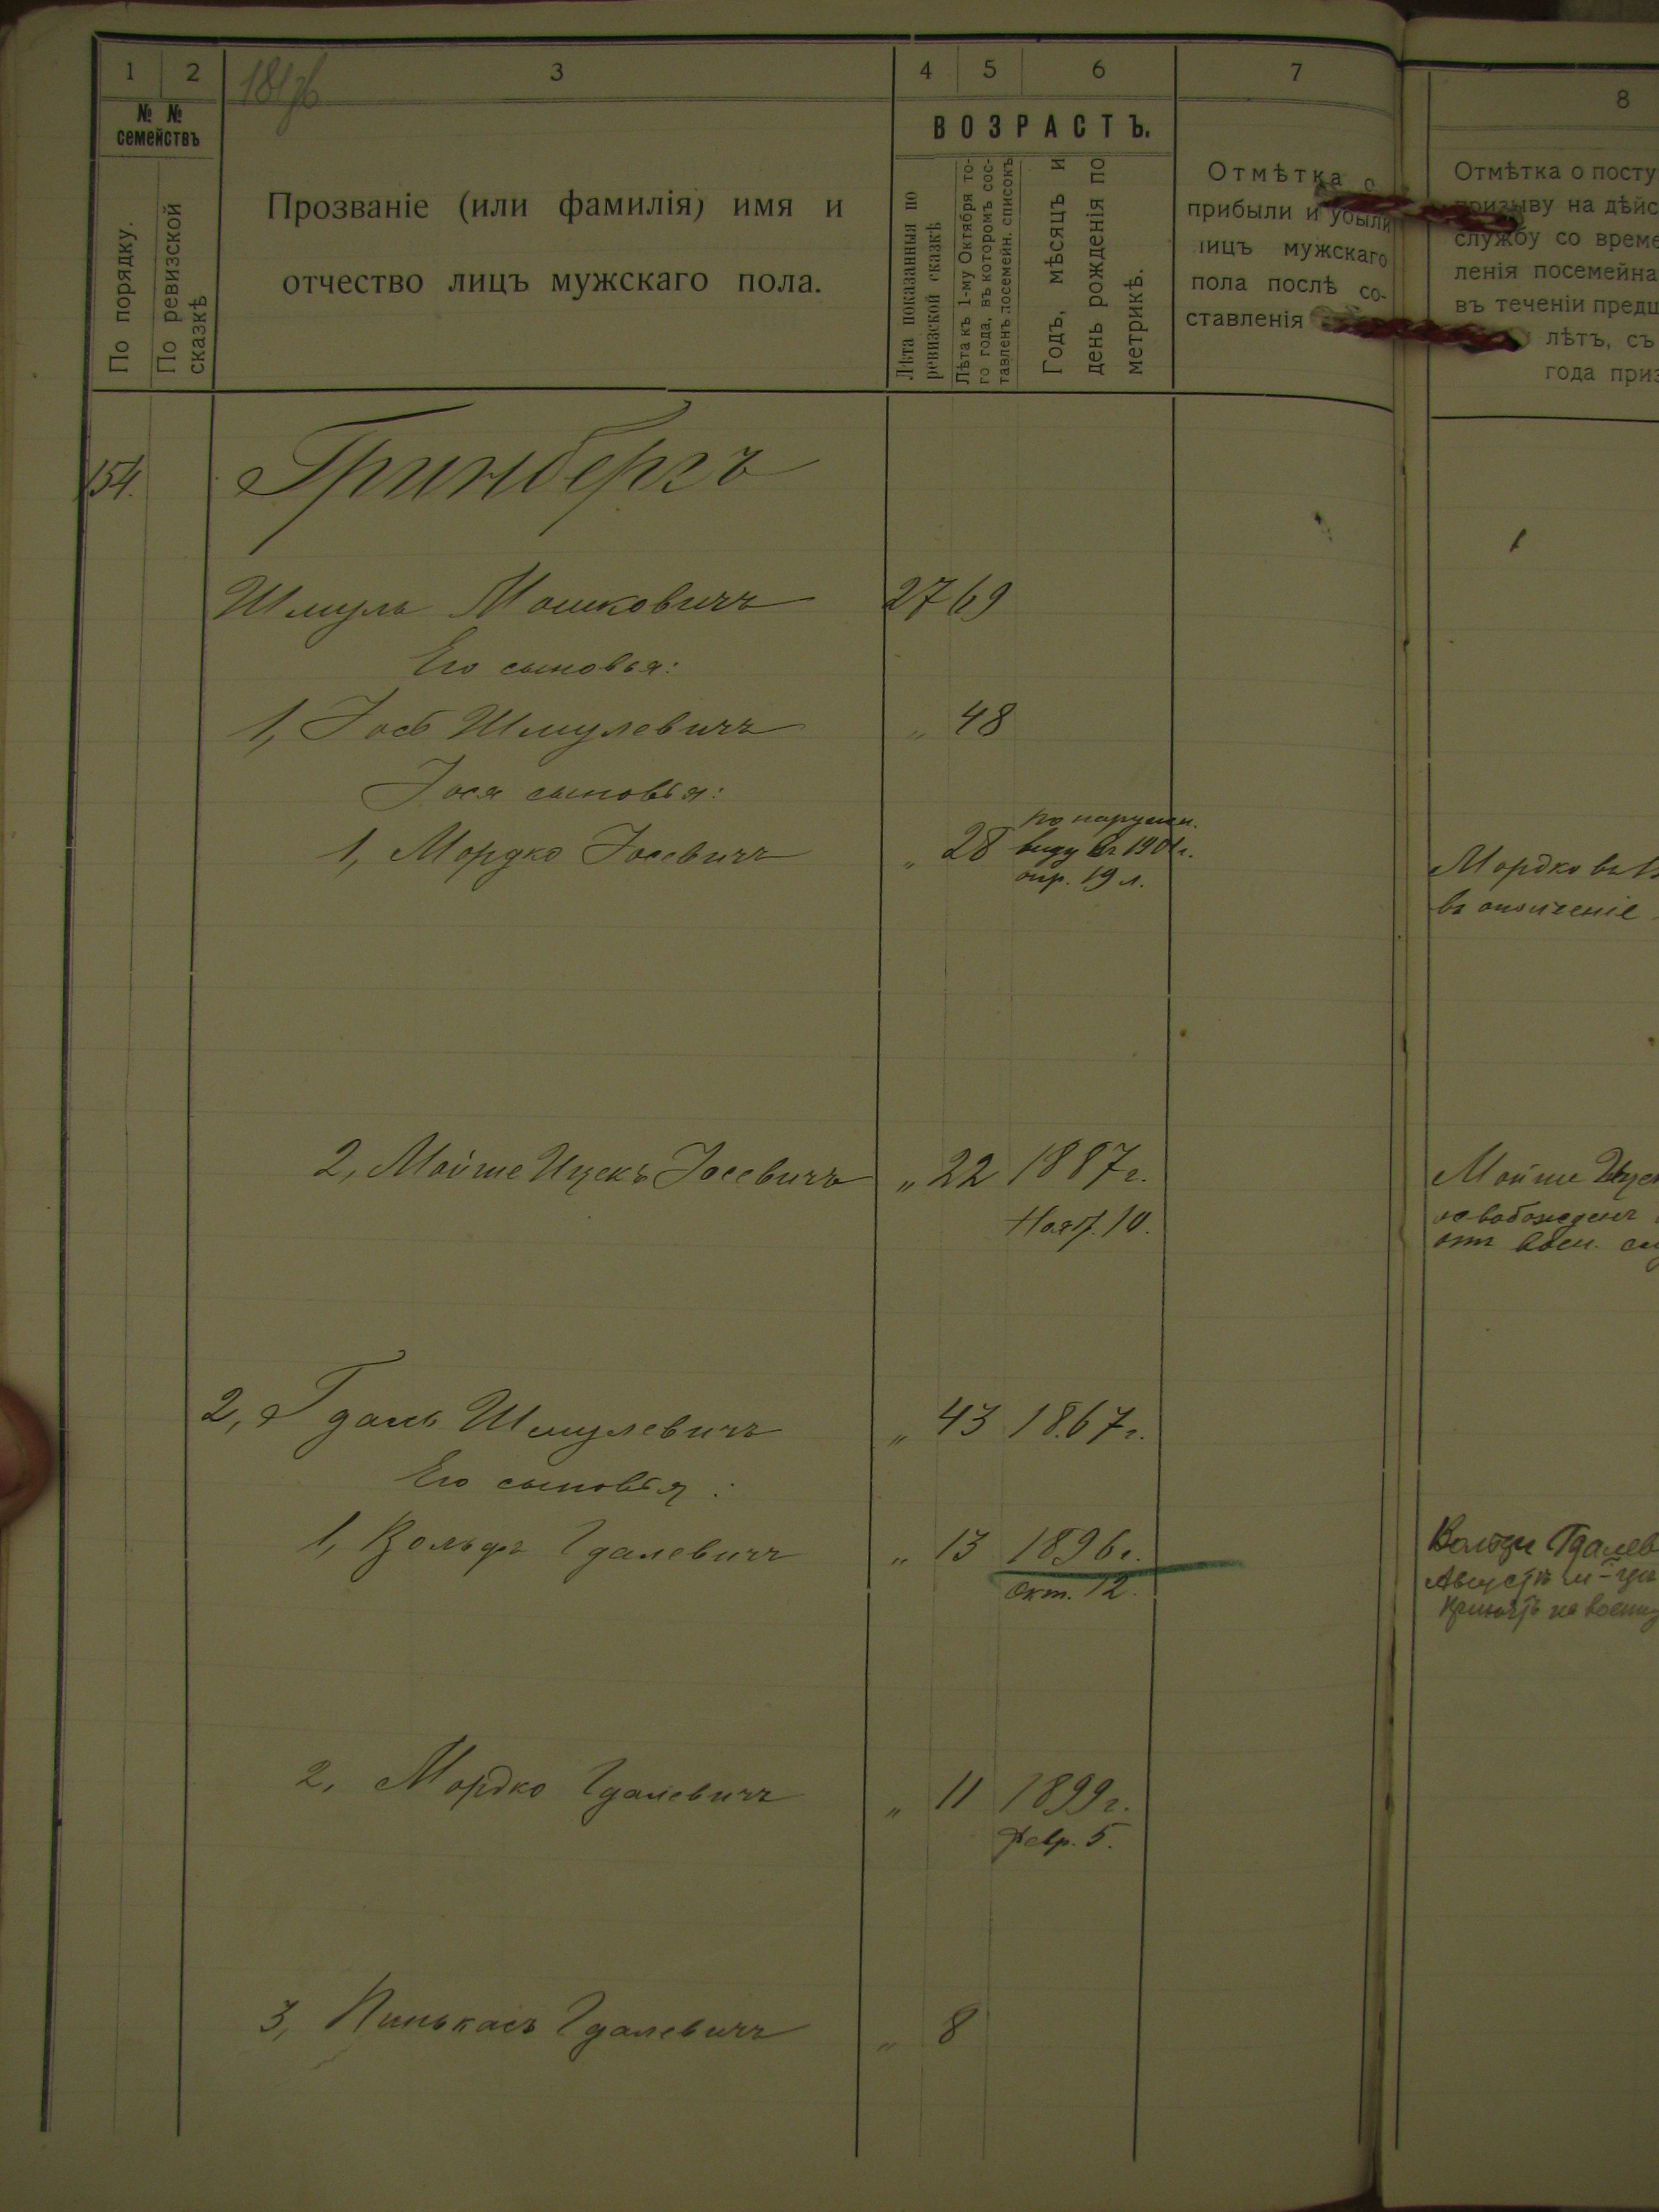 1 2 3 4 5 6 7
181
№ № семействъ
По порядку.
По ревизской сказкѣ
Прозваніе (или фамилія) имя и
отчество лицъ мужскаго пола.
ВОЗРАСТЪ.
Лѣта показанныя по
ревизской сказкѣ
Лѣта къ 1-му Октября то-
го года, въ которомъ сос-
тавленъ посемейн. списокъ
Годъ, мѣсяцъ и
день рожденія по
метрикѣ.
Отмѣтка о
прибыли и убыли
лицъ мужскаго
пола послѣ со-
ставленія
154. Гринбергъ
Шмуль Мошковичъ 27 69
Его сыновья:
1, Іось Шмулевичъ „ 48
Іося сыновья:
1, Мордко Іосевичъ „ 28 по наружн.
виду въ 1901 г.
опр. 19 л.
2, Мойше Ицекъ Іосевичъ „ 22 1887 г.
Нояб. 10.
2, Гдаль Шмулевичъ „ 43 1867 г.
Его сыновья:
1, Вольфъ Гдалевичъ „ 13 1896 г.
Окт. 12.
2, Мордко Гдалевичъ „ 11 1899 г.
Февр. 5.
3, Пинькасъ Гдалевичъ „ 8
8
Отмѣтка о посту
призыву на дѣйс
службу со време
ленія посемейна
въ теченіи предш
лѣтъ, съ
года приз
Мордко въ
въ ополченіе
Мойше Ицек
освобожденъ
отъ воен. слу
Гдалев
Августѣ м-цѣ
принятъ на военну